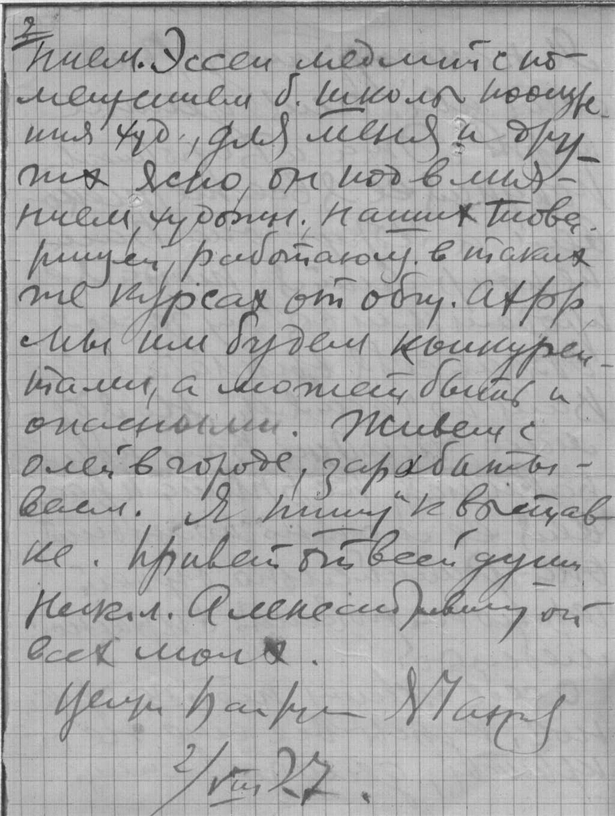 2
нием. Эссен медлит с по-
мещением б. школы поощре-
ния худ., для меня и дру-
гих ясно, он под влия-
нием, художн. наших това-
рищей, работающ. в таких
же курсах от общ. АХРР
мы им будем конкурен-
тами, а может быть и
опасными. Живем с
Олей в городе, зарабаты-
ваем. Я пишу к выстав
ке. Привет от всей души
Никол. Александровичу от
всех моих.
Целую
2/VIII 27.